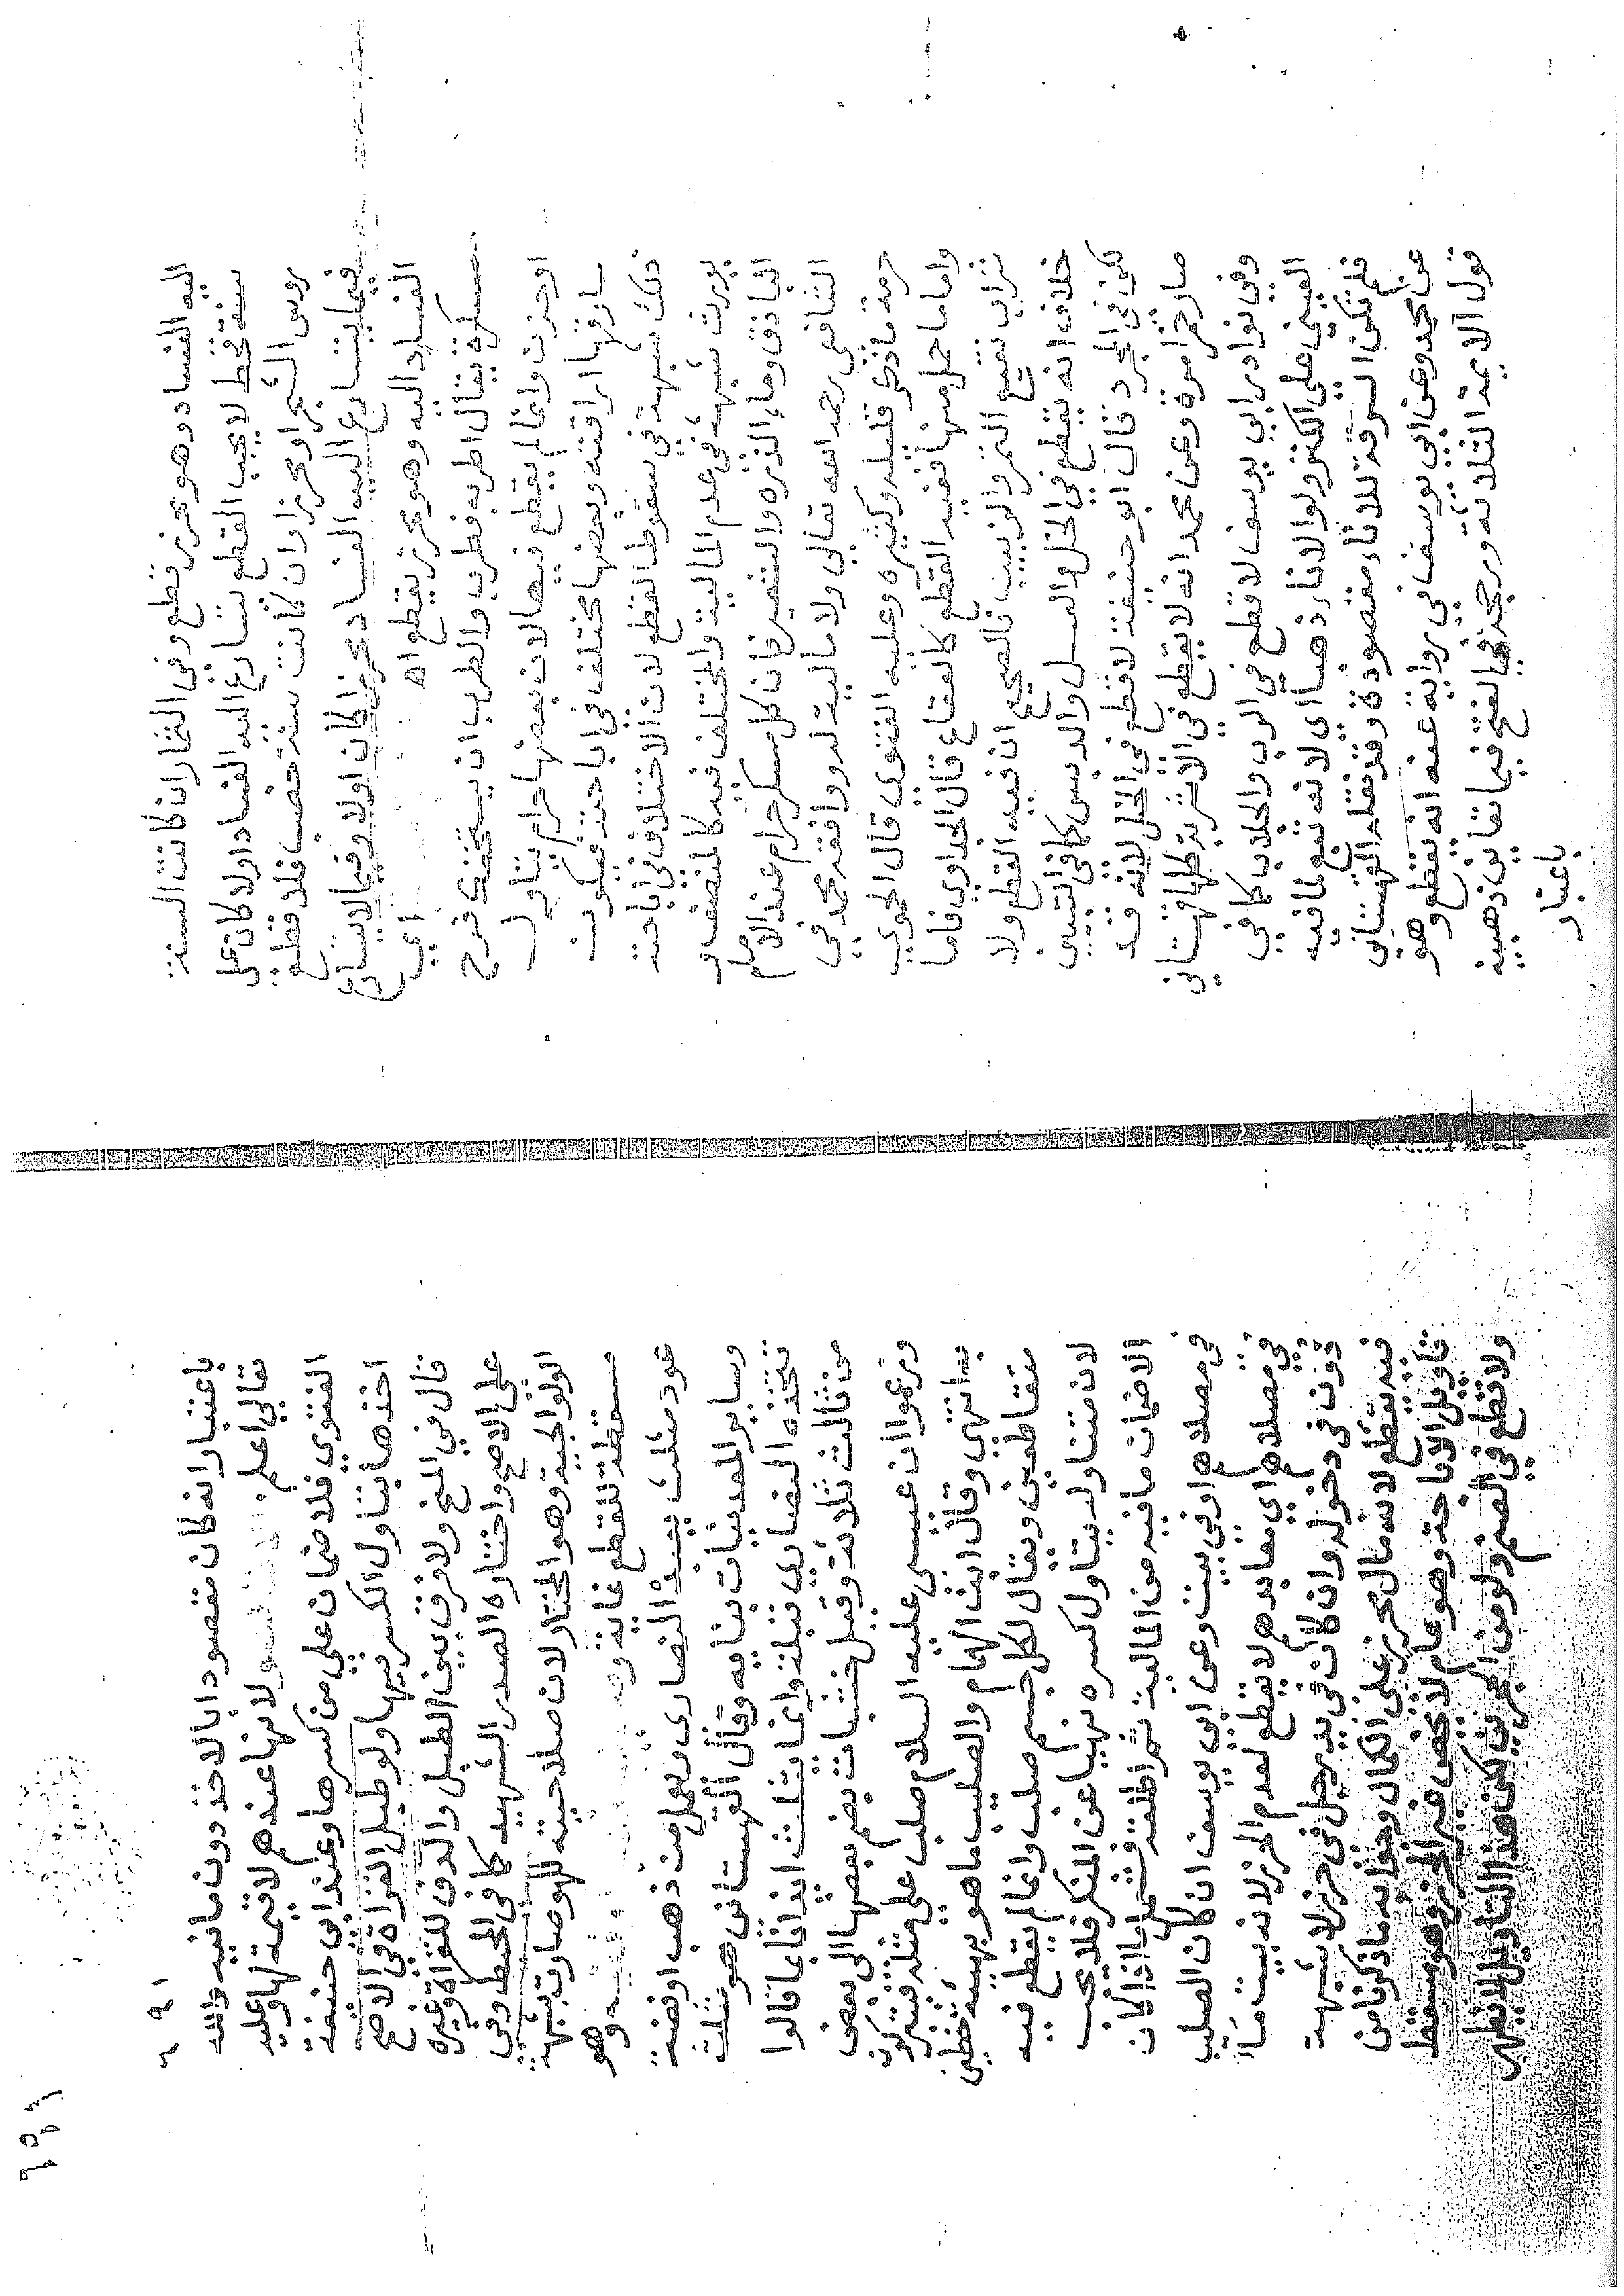 اليه الفساد وهو محرز قطع وفي الثمار ان كانت السنة
سنة قحط لا يجب القطع يتسارع اليه الفساد اولا كان على
روس الشجر او محرزا وان كانت سنة خصب فلا قطع
فيما يتسارع اليه الفساد محرزا كان اولا وفيما لا يتسارع
اليه الفساد وهو محرز يقطع اه اي
مسكرة يقال اطربه فطرب والطرب ان يستخفك فرح
او حزن وانما لم يقطع فيها لان بعضها حرام يتاول
سارقها اراقته وبعضها مختلف في اباحته فيكون
ذلك شبهة في سقوط القطع لان الاختلاف في اباحته
يورث شبهة في عدم المالية والمختلف فيه كالمنصف و
الباذق وماء الذرة والشعير فان كل مسكر حرام عند الامام
الشافعي رحمه الله تعالى ولا مالية له ووافقه محمد في
حرمة ما ذكر قليله وكثيره وعليه الفتوى قال الحموي
واما ما حل منها ففيه القطع كالفقاع قال الحدادي فاما
شراب نقيع التمر والزبيب فالصحيح ان فيه القطع ولا
خلاف انه يقطع في الخل والعسل والدبس كما في التبيين
لكن في المجرد قال ابو حنيفة لا قطع في الخل لانه قد
صار خمرا مرة وعن محمد انه لا يقطع في الاشربة كلها قهستاني
وفي نوادر ابي يوسف لا قطع في الرب والجلاب كما في
العيني على الكنز ولو الاناء ذهبا اي لانه تبع لما فيه
فلم تكن السرقة للاناء مقصودة وقد نقله القهستاني
عن محمد وعن ابي يوسف في رواية عنه انه يقطع وهو
قول الايمة الثلاثة ورجحه في الفتح فيما تعاين ذهبيته
باعتبار
٢٩١
باعتبار انه كان مقصودا بالاخذ دون ما فيه والله
تعالى اعلم لانها عندهم لا قيمة لها وعليه
الفتوى فلا ضمان على من كسرها وعند ابي حنيفة
اخذها يتاول الكسر فيها ولو طبل الغزاة في الاصح
قال في المنح ولا فرق بين الطبل والدف للغزاة وغيره
على الاصح واختاره الصدر الشهيد كما في المحيط وفي
الولوالجية وهو المختار لان صلاحيته للهو صارت شبهة
مسقطة للقطع غاية وهو
عود مثلث يعبده النصارى يعمل من ذهب او فضة
وساير المعدنيات بنايه وقال القهستاني هو مثلث
تتخذه النصارى قبلة وانما يثلث ايذانا بما قالوا
من ثالث ثلاثة وقيل خشبات يضم بعضها الى بعض
وزعموا ان عيسى عليه السلام صلب على مثله فيتبركون
به انتهى وقال ابن الهمام والصليب ما هو بهيئة خطين
متقاطعين ويقال لكل جسم صلب وانما لم يقطع فيه
لان متناوله يتاول كسره نهيا عن المنكر فلا يجب
الا ضمان ما فيه من المالية ثم اطلقه فشمل ما اذا كان
في مصلاهم او في بيت وعن ابي يوسف ان كان الصليب
في مصلاهم اي معابدهم لا يقطع لعدم الحرز لانه بيت ماذون
في دخوله وان كان في يد رجل في حرز لا شبهة
فيه يقطع لانه مال محرز على الكمال وجوابه ما ذكرنا من
تاويل الاباحة وهو عام لا يخص غير الحرز وهو مسقط
ولا قطع في الصنم ولو من الحجرين لكن هذا التاويل لا يظهر